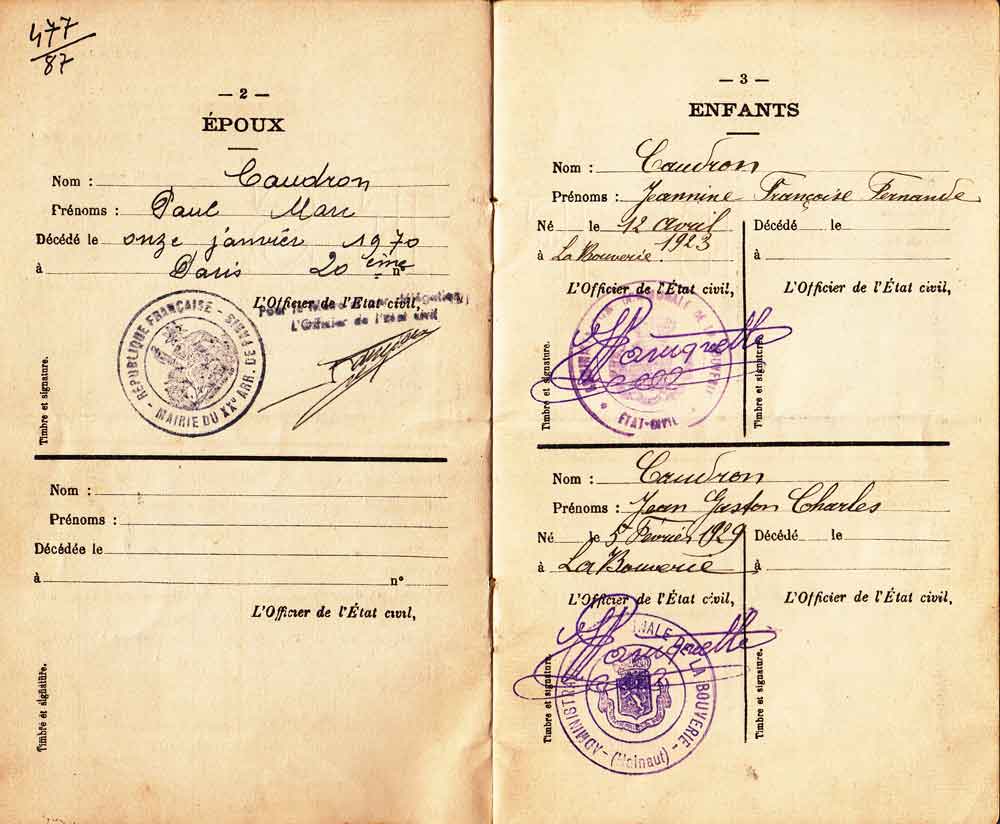 477
87
— 2 —
ÉPOUX
Nom : Caudron
Prénoms : Paul Marc
Décédé le onze janvier 1970
à Paris 20ème n°
L'Officier de l'Etat civil,
Pour le Maire délégation
L'Officier de l'état civil
RÉPUBLIQUE FRANÇAISE - MAIRIE DU XXe ARR. DE PARIS
Timbre et signature.
Nom :
Prénoms :
Décédée le
à n°
L'Officier de l'État civil,
Timbre et signature.
— 3 —
ENFANTS
Nom : Caudron
Prénoms : Jeannine Françoise Fernande
Né le 12 Avril 1923 Décédé le
à La Bouverie. à
L'Officier de l'État civil, L'Officier de l'État civil,
ETAT-CIVIL
Timbre et signature. Timbre et signature.
Nom : Caudron
Prénoms : Jean Gaston Charles
Né le 5 Février 1929 Décédé le
à La Bouverie à
L'Officier de l'État civil, L'Officier de l'État civil,
LA BOUVERIE - (Hainaut) -
Timbre et signature. Timbre et signature.